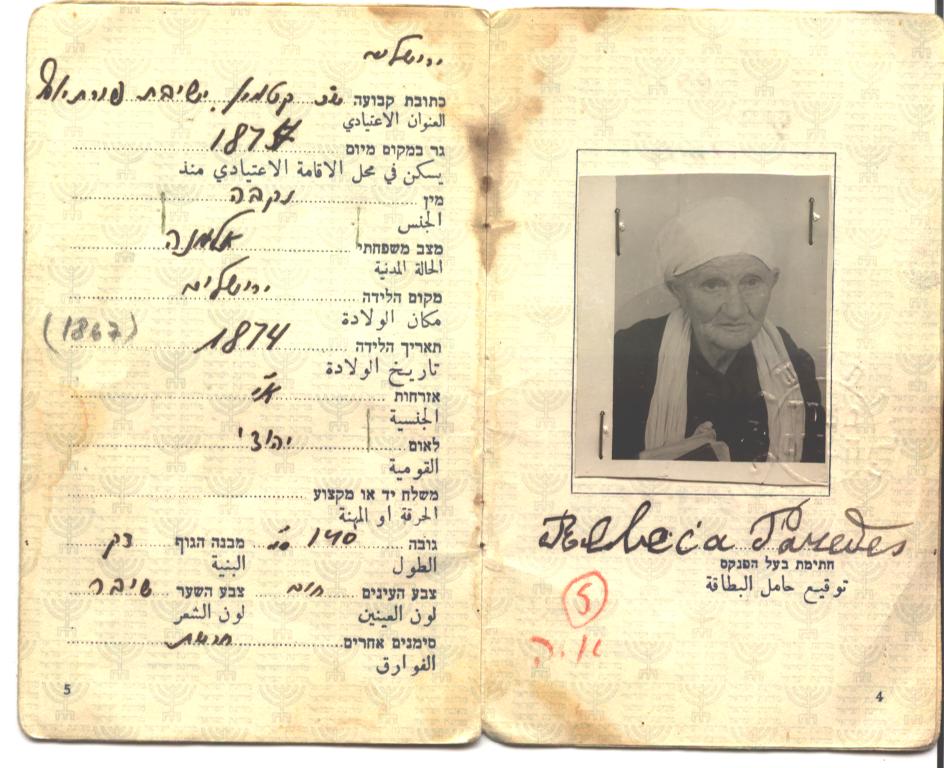 Rebbeca Paredes
חתימת בעל הפנקס
توقيع حامل البطاقة
5
א.ה
4
ירושלים
כתובת קבועה קטמון, ישיבת פורת יוסף
العنوان الاعتيادي
גר במקום מיום 1874
يسكن في محل الاقامة الاعتيادي منذ
מין נקבה
الجنس
מצב משפחתי אלמנה
الحالة المدنية
מקום הלידה ירושלים
مكان الولادة
תאריך הלידה 1874 (1867)
تاريخ الولادة
אזרחות א"י
الجنسية
לאום יהודי
القومية
משלח יד או מקצוע
الحرفة او المهنة
גובה 140 מבנה הגוף דק
الطول البنية
צבע העינים חום צבע השער שיבה
لون العينين لون الشعر
סימנים אחרים
الفوارق
5